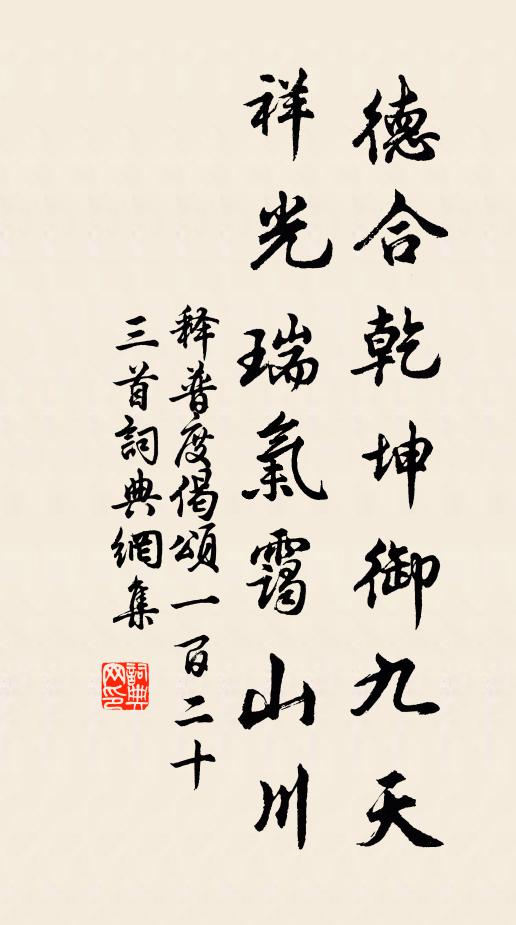 德合乾坤御九天
祥光瑞氣靄山川
释普度偈頌一百二十
三首詞典網集
詞典
网印